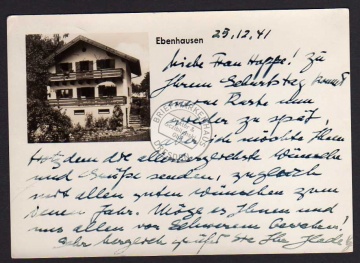 Ebenhausen 23.12.41
Liebe Frau Hoppe! Zu
Ihrem Geburtstag kommt
meine Karte nun
wieder zu spät,
ich möchte Ihnen
trotzdem die allerherzlichsten Wünsche
und Grüße senden, zugleich
mit allen guten Wünschen zum
neuen Jahr. Möge es Ihnen und
uns allen vor Schwerem bewahren!
Sehr herzlich grüßt Sie Ihre